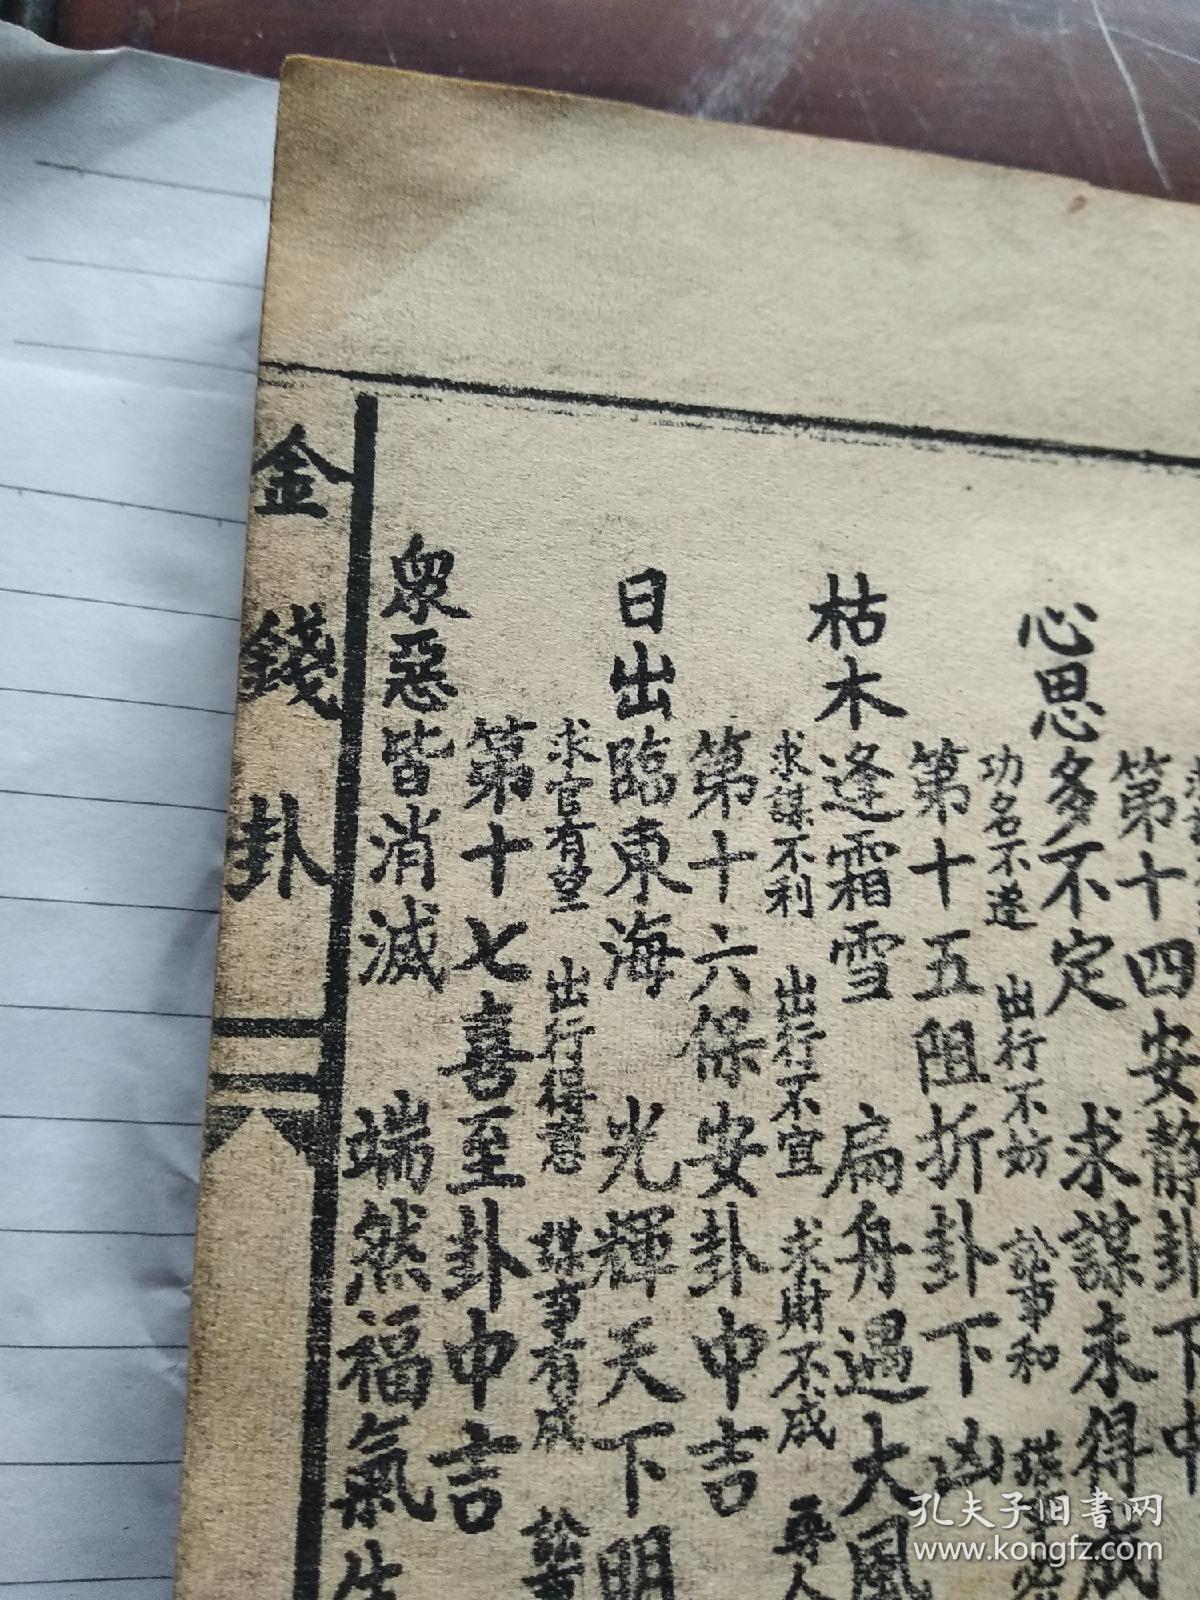 第十四安静卦下中
心思多不定　求謀未得成
功名不遂　出行不妨　訟事和
第十五阻折卦下凶
枯木逢霜雪　扁舟過大風
求謀不利　出行不宜　求財不成　尋人
第十六保安卦中吉
日出臨東海　光輝天下明
求官有望　出行得意　謀事有成　訟
第十七喜至卦中吉
衆惡皆消滅　端然福氣生
金錢卦
孔夫子旧书网
www.kongfz.com